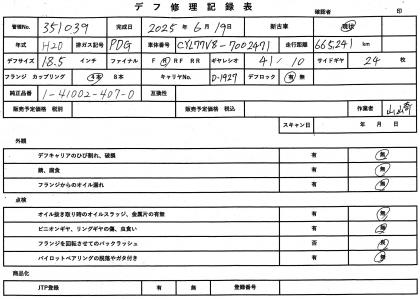 デフ修理記録表
確認者 印
管理No. 351039 完成日 2025年 6月 19日 新古車 現状
年式 H20 排ガス記号 PDG 車体番号 CYL77V8-7002471 走行距離 665,241 km
デフサイズ 18.5 インチ ファイナル F R RF RR ギヤレシオ 41/10 サイドギヤ 24 枚
フランジ カップリング 4本 8本 キャリヤNo. D-1927 デフロック 有 無
純正品番 1-41002-407-0 互換性
販売予定価格 税別 販売予定価格 税込 作業者
スキャン日 年 月 日
外観
デフキャリアのひび割れ、破損 有 無
錆、腐食 有 無
フランジからのオイル漏れ 有 無
点検
オイル抜き取り時のオイルスラッジ、金属片の有無 有 無
ピニオンギヤ、リングギヤの傷、虫食い 有 無
フランジを回転させてのバックラッシュ 否 良
パイロットベアリングの脱落やガタ付き 有 無
商品化
JTP登録 有 無 登録番号